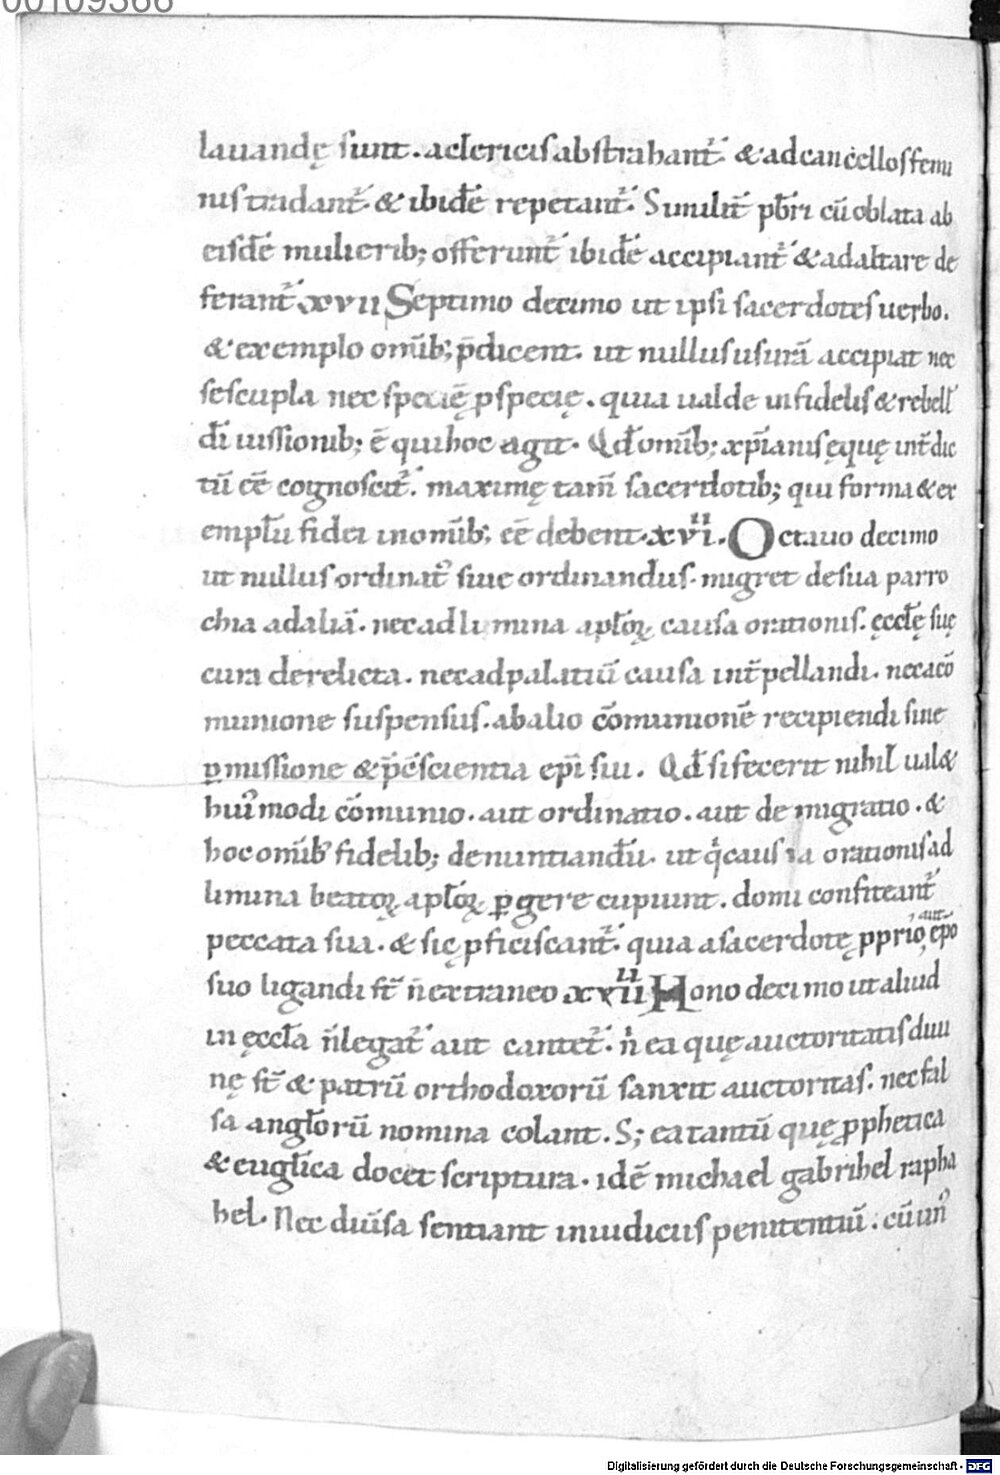 00109366
lauandę sunt. aclericis abstrahant᷑. & ad cancellos femi
nis tradant᷑. & ibidē repetant᷑. Similit̄ pb̄ri cū oblata ab
eisdē mulierib; offerunt᷑ ibidē accipiant᷑ & ad altare de
ferant᷑ xvii Septimo decimo ut ipsi sacerdotes uerbo.
& exemplo om̄ib; p̄dicent. ut nullus usurā accipiat nec
sescupla nec speciē ꝑ specię. quia ualde infidelis & rebell̄
dī iussionib; ē qui hoc agit. Qd̄ om̄ib; xp̄ianis ęquę int̄dic
tū eē cognoscit᷑. maximę tam̄ sacerdotib; qui forma & ex
emplū fidei in om̄ib; eē debent. xviii. Octauo decimo
ut nullus ordinat᷑ siue ordinandus. migret de sua parro
chia ad aliā. nec ad limina apl̄oꝝ causa orationis. ęcclę suę
cura derelicta. nec ad palatiū causa int̄pellandi. nec a cō
munione suspensus. ab alio cōmunionē recipiendi siue
ꝑmissione & p̄scientia epi̅ sui. Qd̄ si fecerit nihil ual&
hui᷒modi cōmunio. aut ordinatio. aut de migratio. &
hoc om̄ib᷒ fidelib; denuntiandū. ut qͥ causa orationis ad
limina beatoꝝ apl̄oꝝ ꝑgere cupiunt. domi confiteant᷑
peccata sua. & sic ꝓficiscant᷑. quia a sacerdotę ꝓprio, aut epo
suo ligandi st̄ n̄ extraneo xviiii Nono decimo ut aliud
in ęccl̄a n̄ legat᷑ aut cantet᷑. nͥ ea quę auctoritatis diui
nę st̄ & patrū orthodoxorū sanxit auctoritas. nec fal
sa angl̄orū nomina colant. S; ea tantū quę ꝓphetica
& eugl̄ica docet scriptura. id ē michael gabrihel rapha
hel. Nec diūsa sentiant in iudiciis penitentiū. cū un᷒
Digitalisierung gefördert durch die Deutsche Forschungsgemeinschaft - DFG